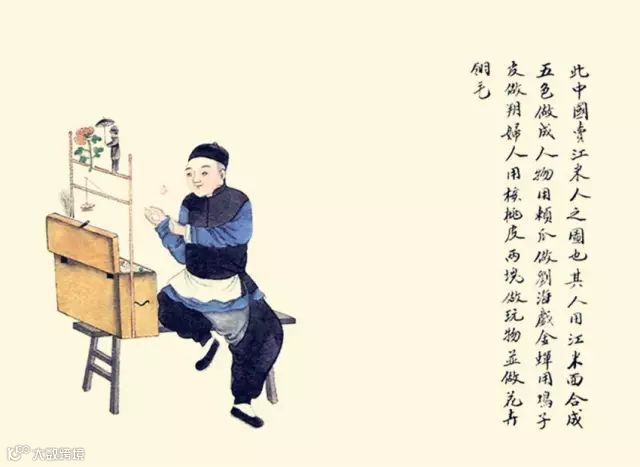 此中國賣江米人之圖也其人用江米面合成
五色做成人物用頼瓜做劉海戲金蟬用鳩子
皮做翔婦人用核桃皮兩塊做玩物並做花卉
翎毛
大数跨境